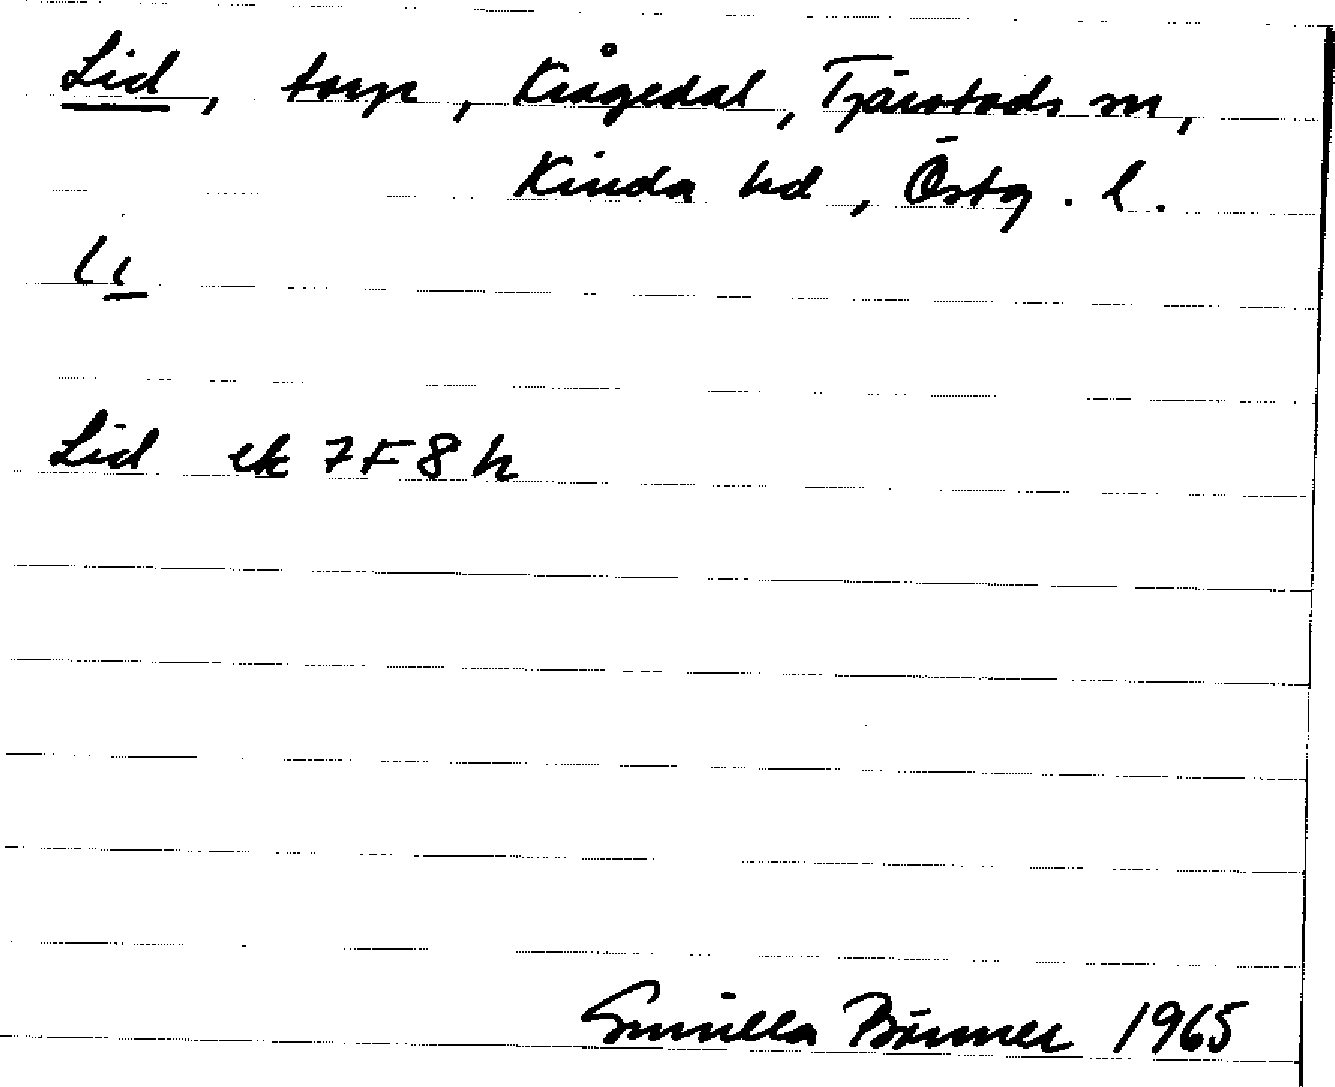 Lid, torp, Krågedal, Tjärstads sn,
Kinda hd, Östg. l.
Lid ek 7F8h
Gunilla 1965